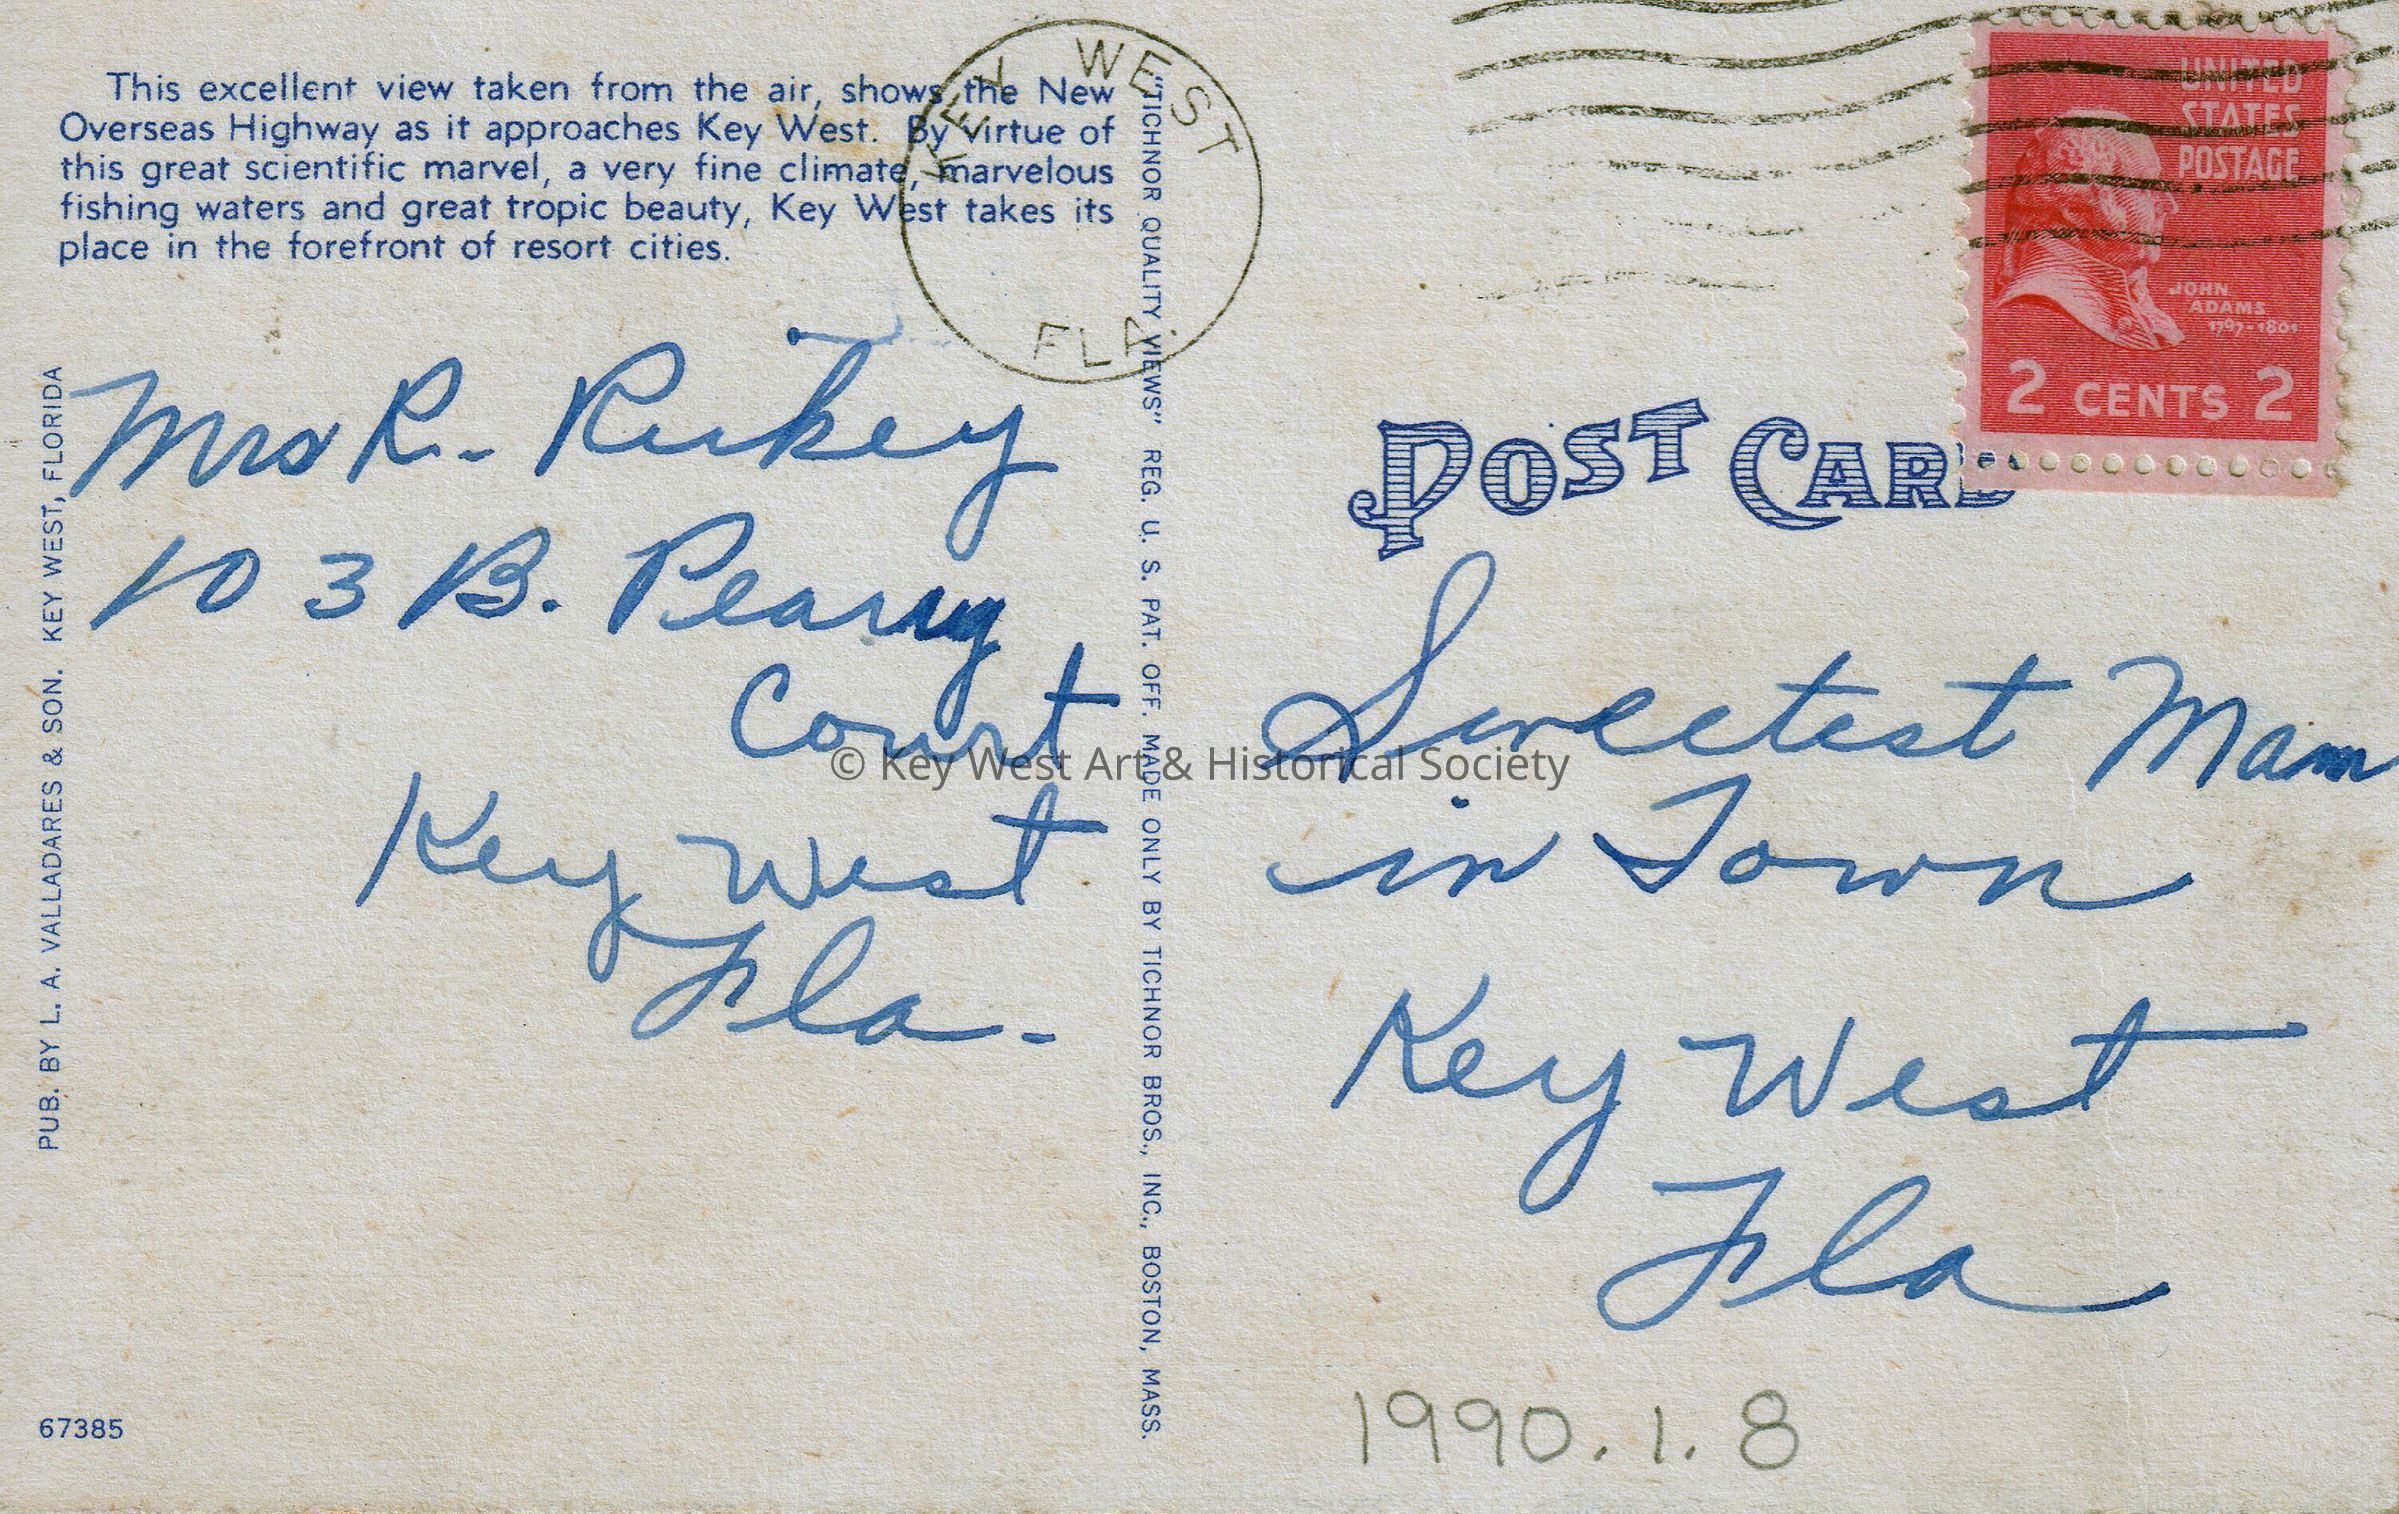 This excellent view taken from the air, shows the New
Overseas Highway as it approaches Key West. By virtue of
this great scientific marvel, a very fine climate, marvelous
fishing waters and great tropic beauty, Key West takes its
place in the forefront of resort cities.
KEY WEST
FLA.
UNITED
STATES
POSTAGE
JOHN
ADAMS
1797-1801
2 CENTS 2
POST CARD
PUB. BY L. A. VALLADARES & SON. KEY WEST, FLORIDA
Mrs R.
103 B. Peary
Court
Key West
Fla-
"TICHNOR QUALITY VIEWS" REG. U. S. PAT. OFF. MADE ONLY BY TICHNOR BROS., INC., BOSTON, MASS.
Sweetest Mam
in Town
Key West
Fla
© Key West Art & Historical Society
67385
1990.1.8